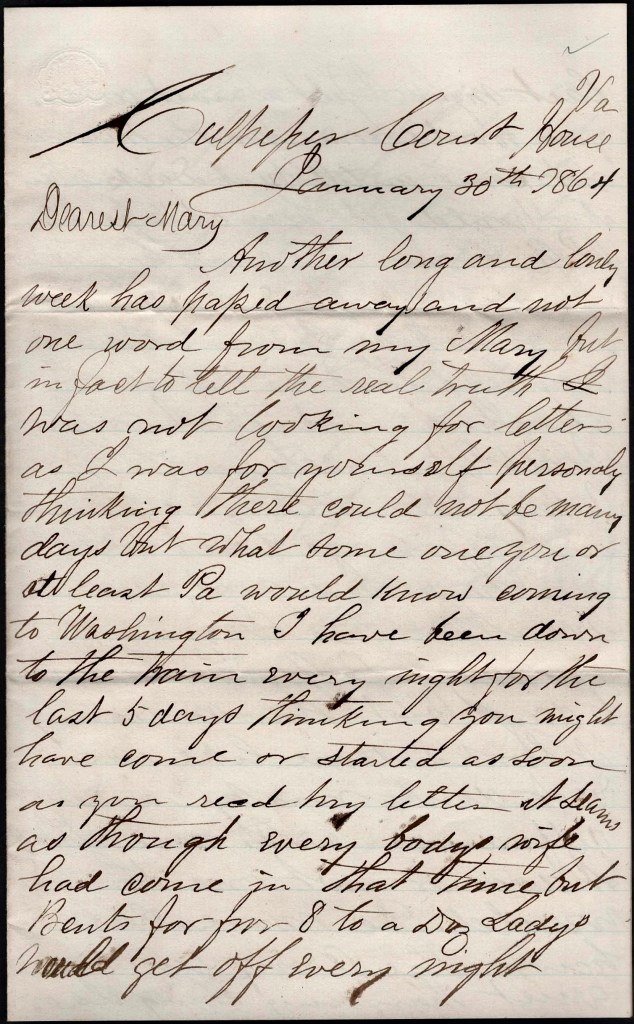 Va
Culpeper Court House
January 30th 1864
Dearest Mary
Another long and lonely
week has passed away and not
one word from my Mary but
in fact to tell the real truth I
was not looking for letters
as I was for yourself personaly
thinking there could not be many
days but what some one you or
at least Pa would know coming
to Washington I have been down
to the train every night for the
last 5 days thinking you might
have come or started as soon
as you recd my letter it seams
as though every bodys wife
had come in that time but
Bents for from 8 to a Doz Ladys
would get off every night